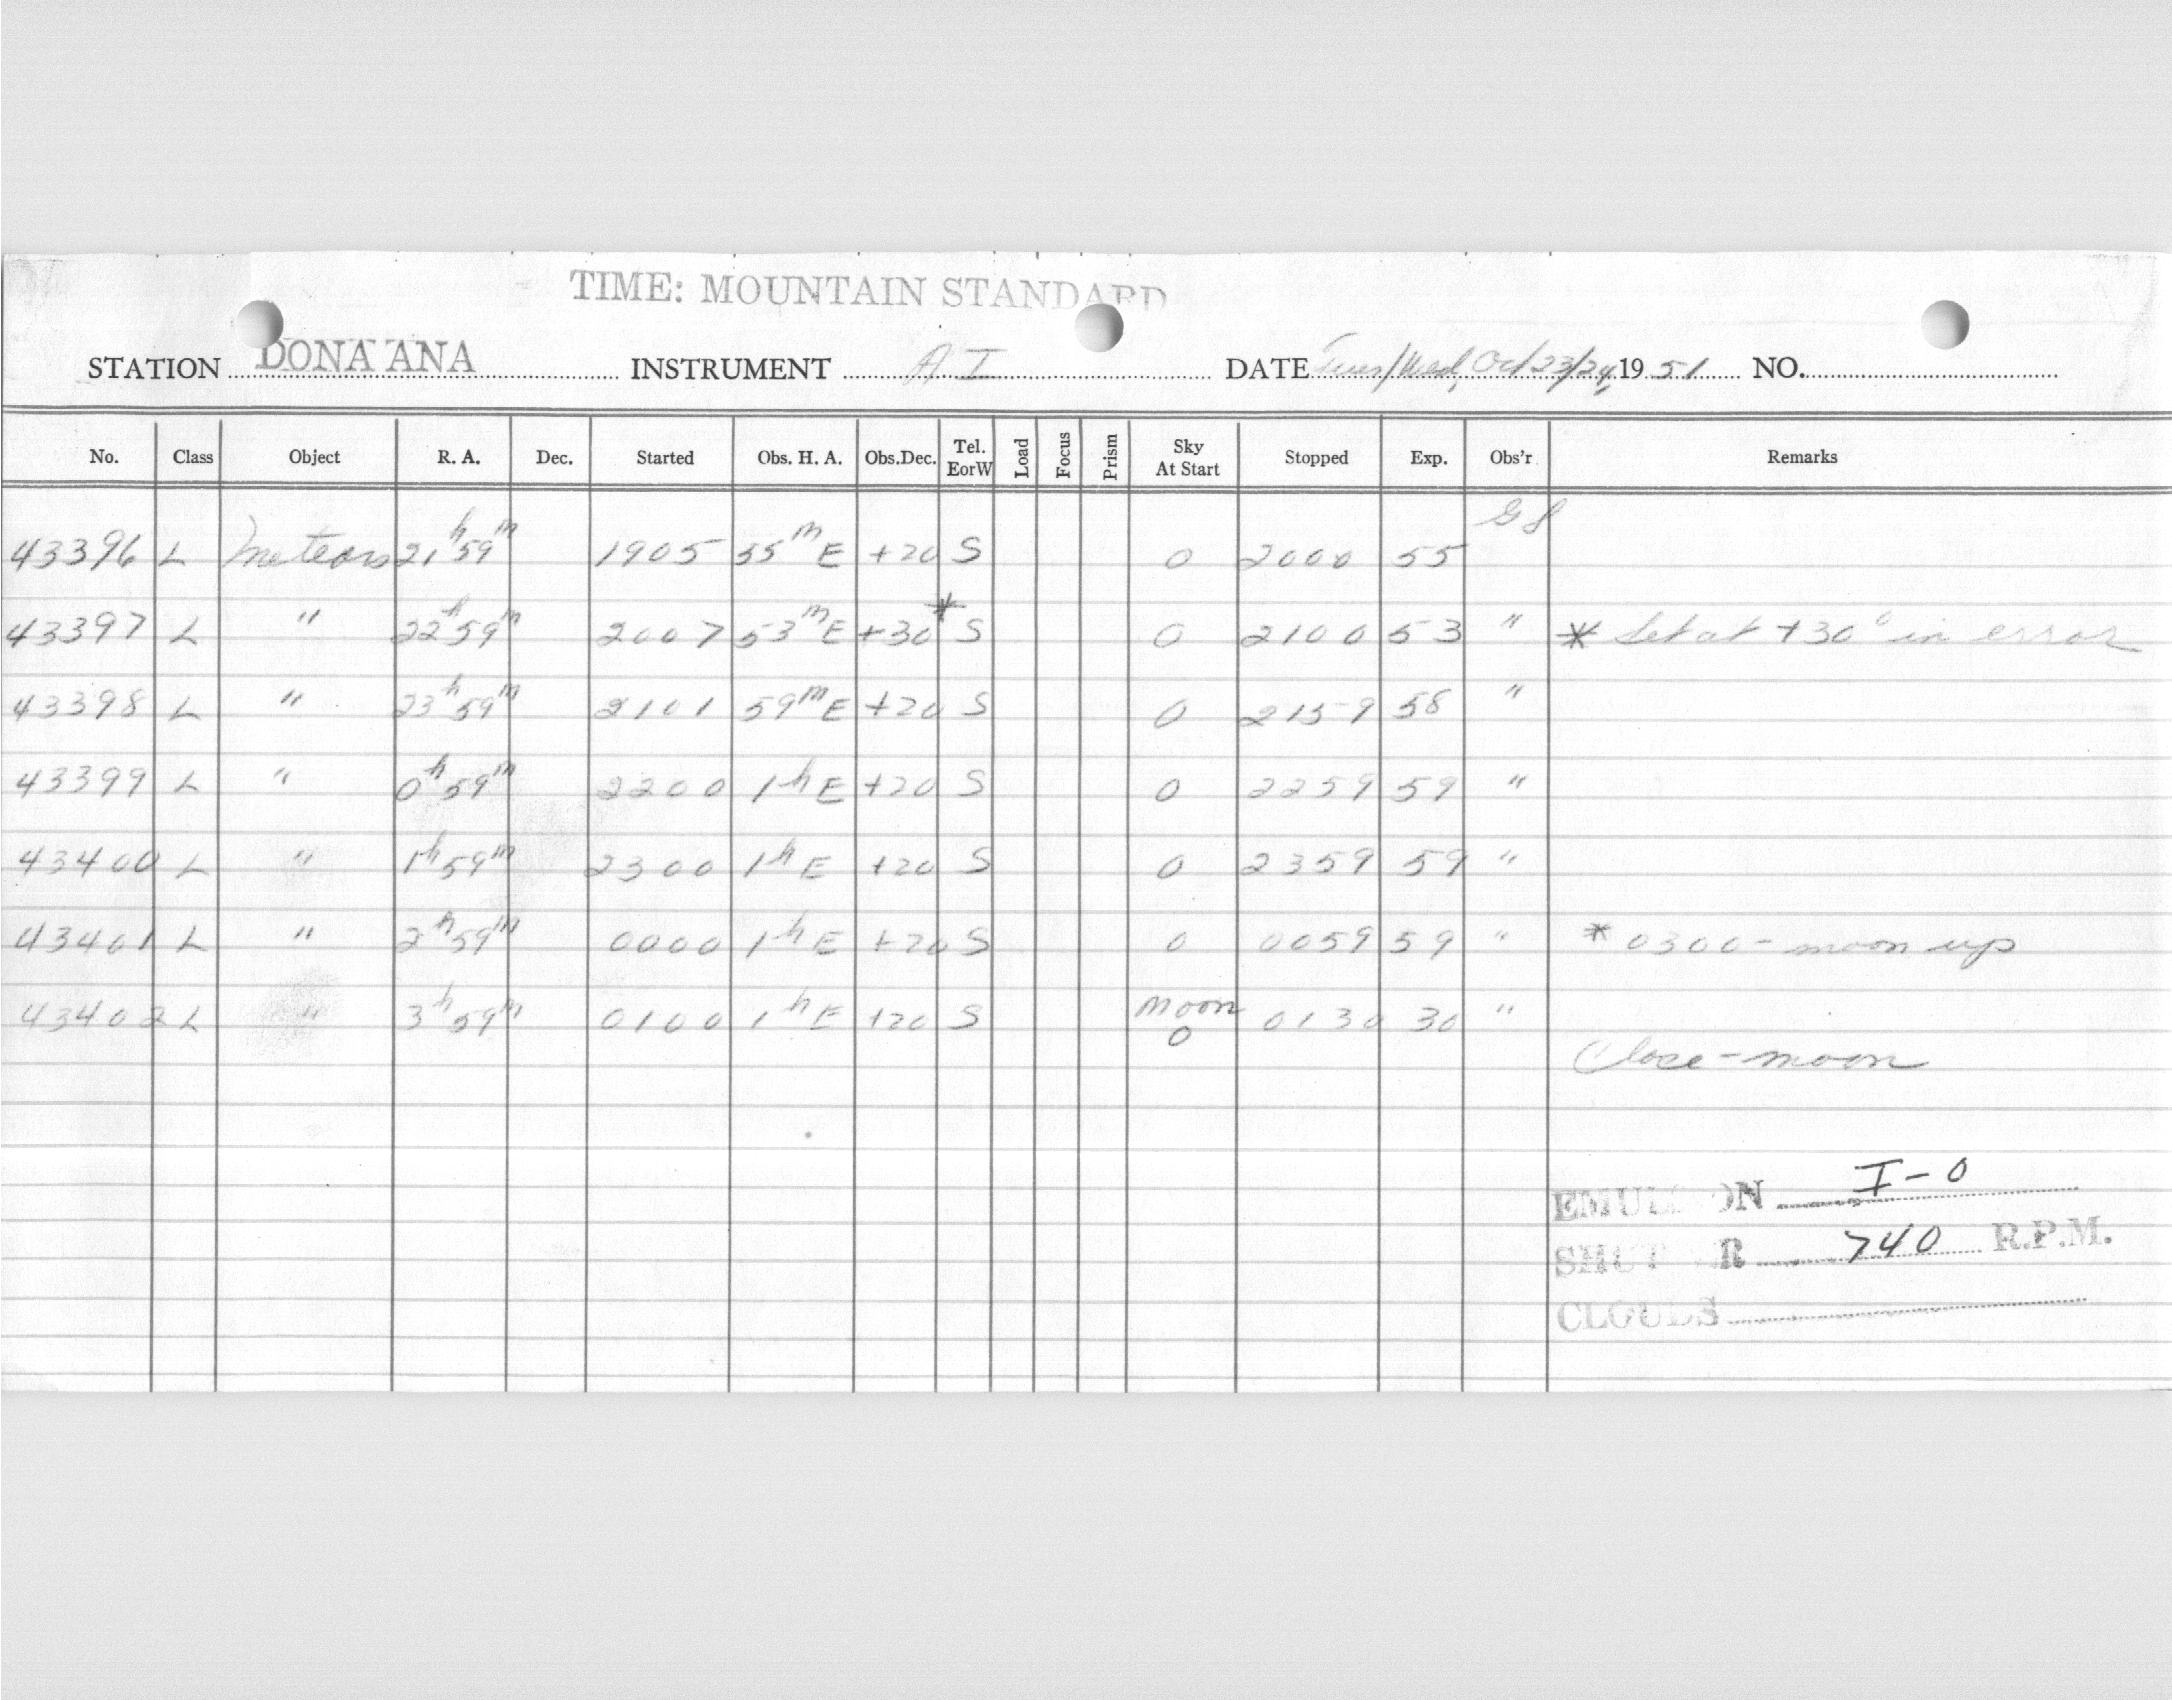 TIME: MOUNTAIN STANDARD
STATION DONA ANA INSTRUMENT AI DATE Tues/Wed, Oct 23/24, 1951 NO.
No. Class Object R. A. Dec. Started Obs. H. A. Obs.Dec. Tel. EorW Load Focus Prism Sky At Start Stopped Exp. Obs'r Remarks
43396 L Meteors 21h 59m 1905 55m E +20 S 0 2000 55 GS
43397 L " 22h 59m 2007 53m E +30* S 0 2100 53 " * Set at +30° in error
43398 L " 23h 59m 2101 59m E +20 S 0 2159 58 "
43399 L " 0h 59m 2200 1h E +20 S 0 2259 59 "
43400 L " 1h 59m 2300 1h E +20 S 0 2359 59 "
43401 L " 2h 59m 0000 1h E +20 S 0 0059 59 " * 0300 - moon up
43402 L " 3h 59m 0100 1h E +20 S moon 0 0130 30 "
Close - moon
EMULSION I-0
SHUTTER 740 R.P.M.
CLOUDS